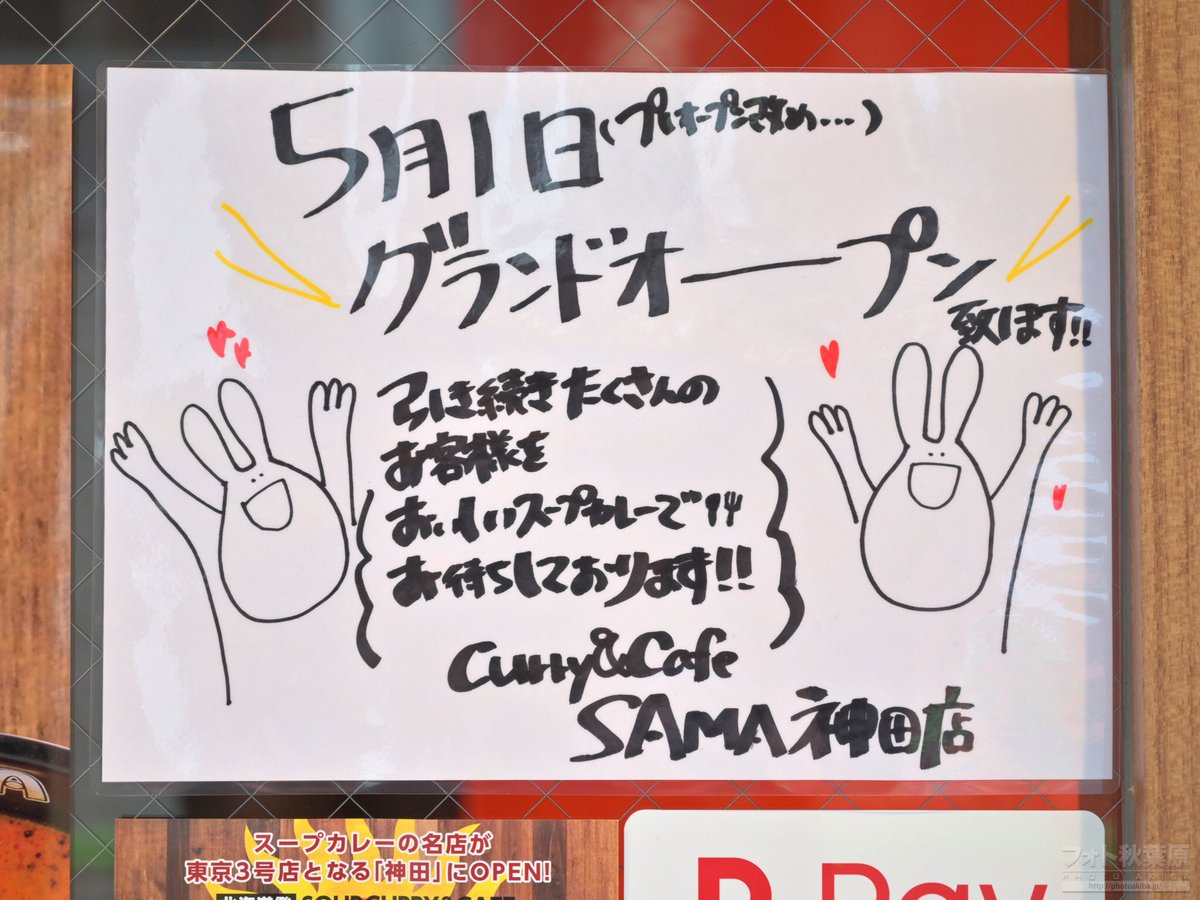 5月1日(プレオープン改め…)
グランドオープン
致します!!
引き続きたくさんの
お客様を
おいしいスープカレーで
お待ちしております!!
Curry&Cafe
SAMA 神田店
スープカレーの名店が
東京3号店となる「神田」にOPEN!
北海道発 SOUPCURRY&CAFE
P Pay
フォト秋葉原
PHOTO AKIBA
http://photoakiba.jp/